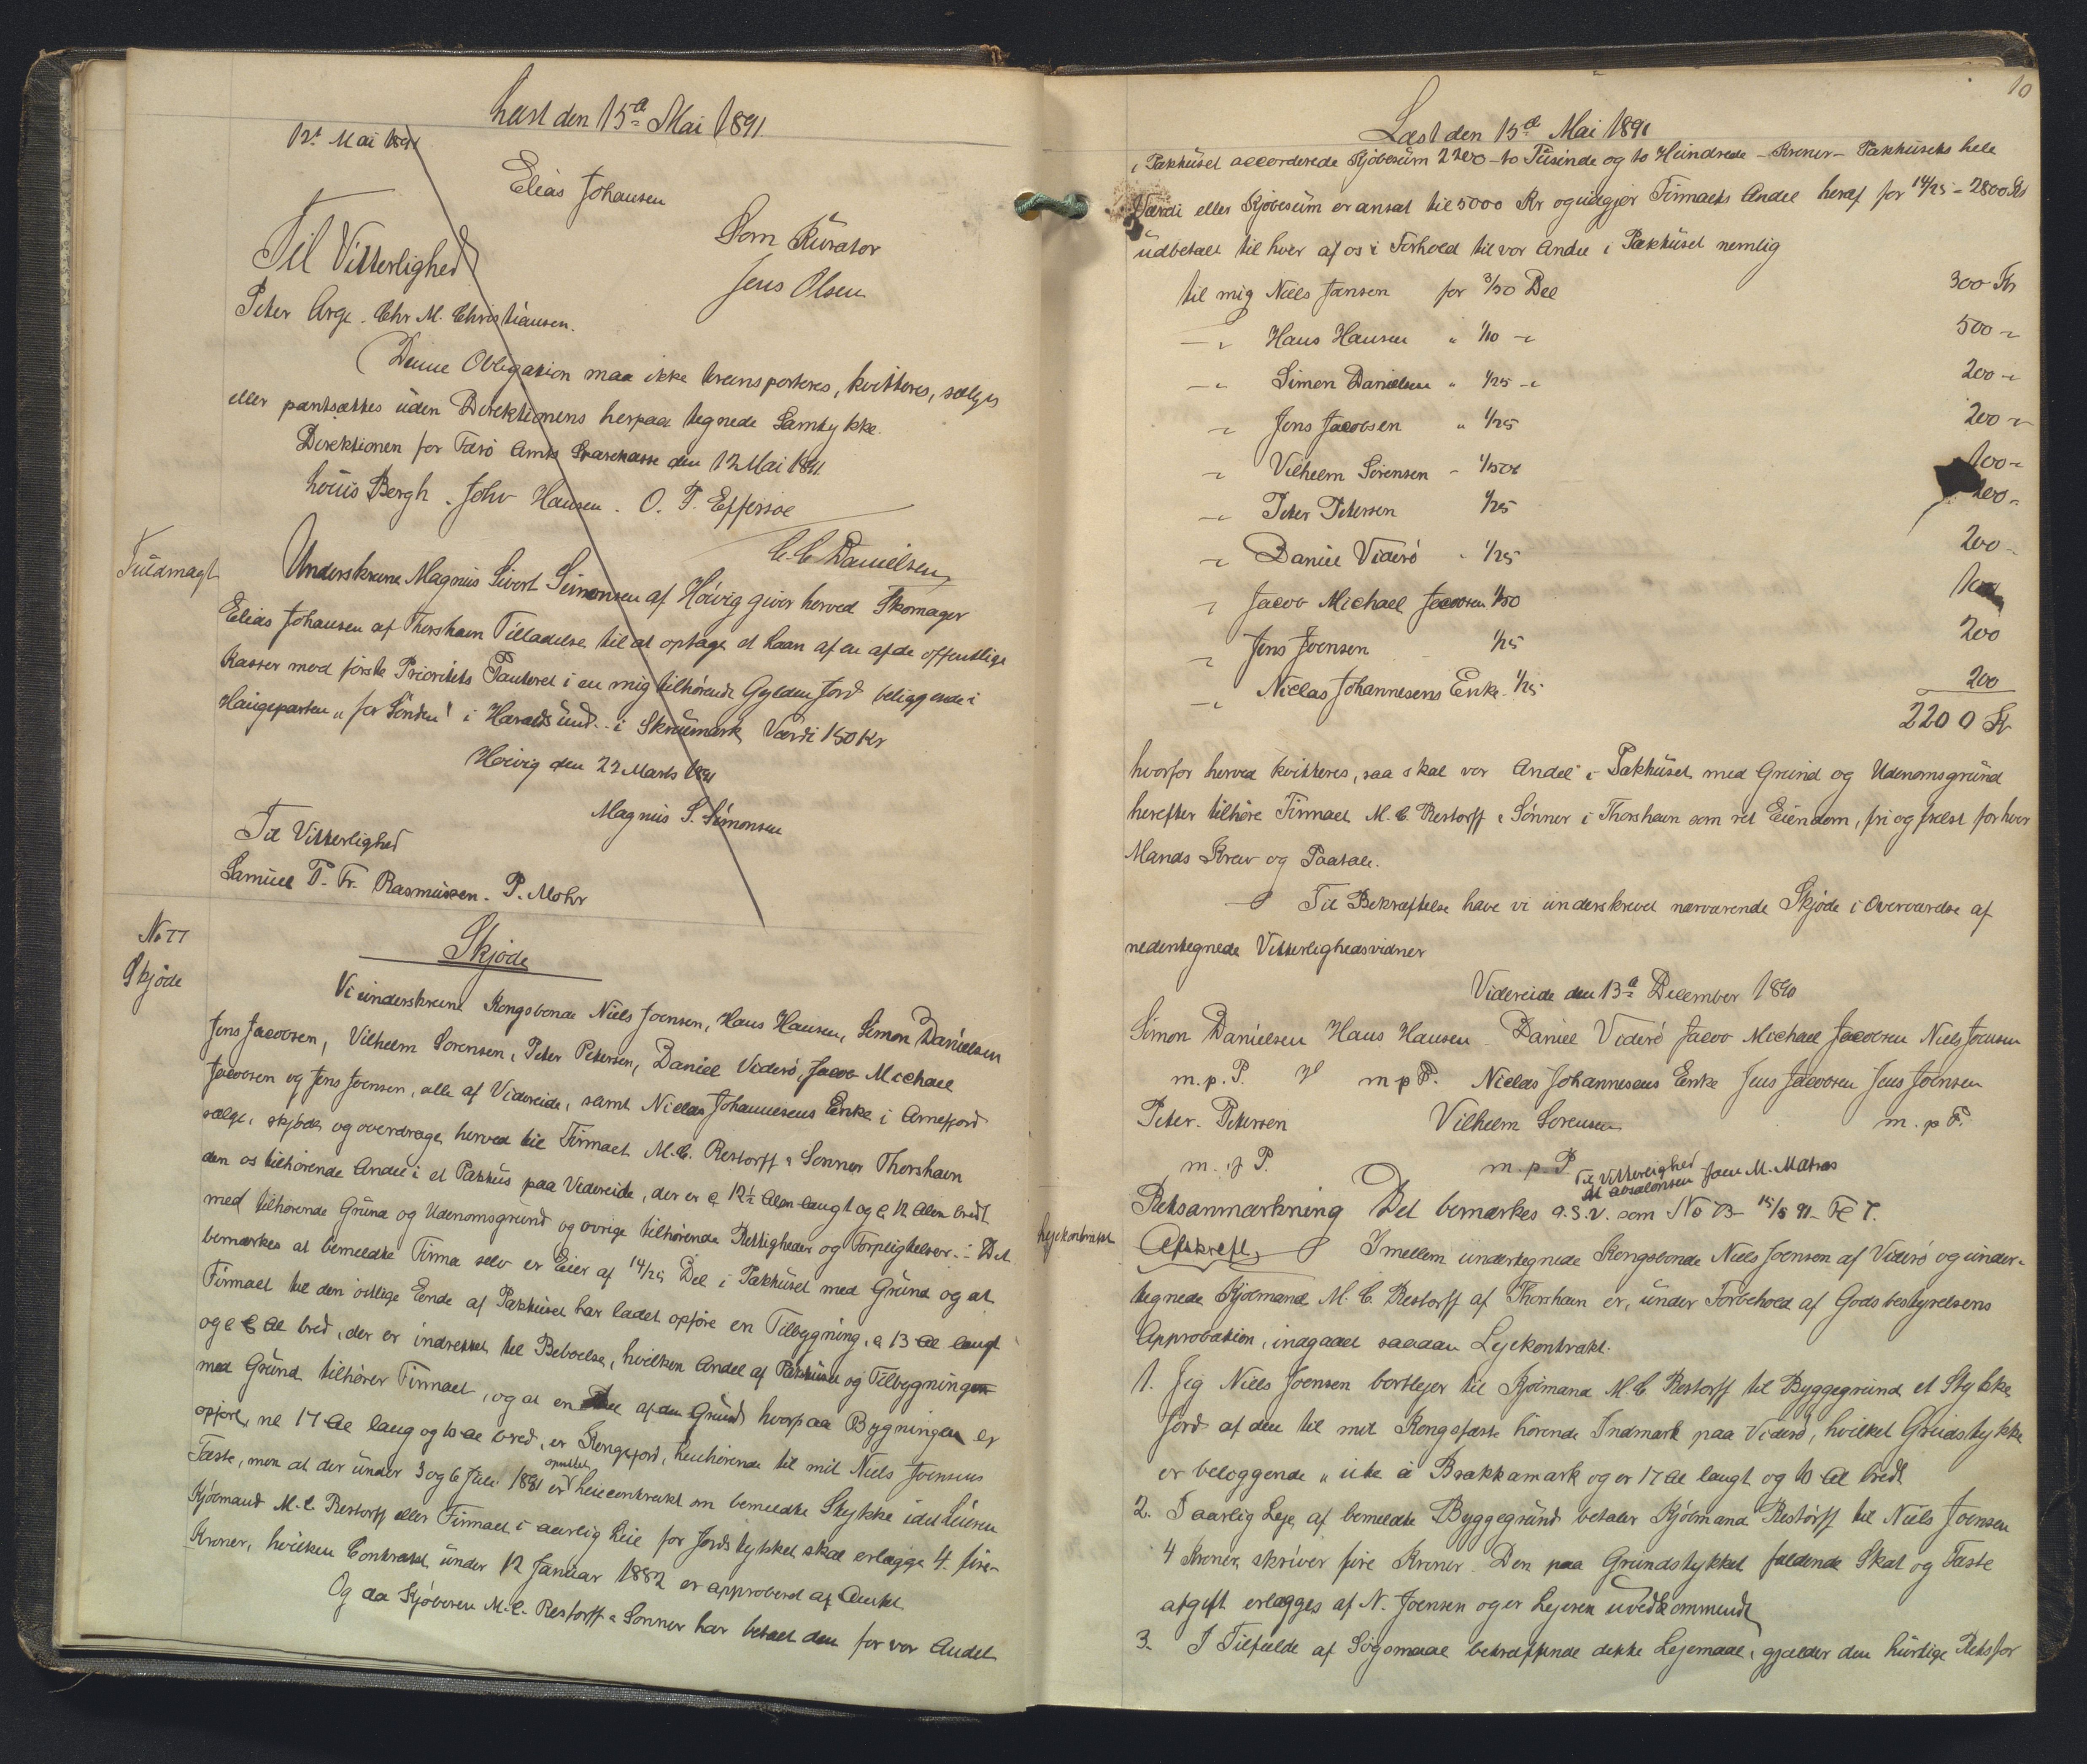 Læst den 15d Mai 1891
12t Mai 1891
Elias Johansen
Som Kurator
Til Vitterlighed
Jens Olsen
Peter Arge. Chr M. Christiansen.
Denne Obligation maa ikke transporteres, kvitteres, sælges
eller pantsættes uden Direktionens herpaa tegnede Samtykke.
Direktionen for Færø Amts Sparekasse den 12 Mai 1891
Louis Bergh. Johs Hansen. O. F. Effersøe
C. C. Danielsen,
Fuldmagt
Underskrevne Magnus Sivert Simonsen af Hoivig giver herved Skomager
Elias Johansen af Thorshavn Tilladelse til at optage et Laan af en af de offentlige
Kasser mod første Prioritets Panteret i en mig tilhørende Gylden Jord beliggende i
Haugeparten "for Sønden" i Haraldsund - i Skruumark Værdi 150 Kr
Hoivig den 22 Marts 1891
Magnus S. Simonsen
Til Vitterlighed
Samuel P. Fr. Rasmussen. P. Mohr
No 77
Skjøde
Skjøde
Vi underskrevne Kongsbonde Niels Joensen, Hans Hansen, Simon Danielsen
Jens Jacobsen, Vilhelm Sørensen, Peter Petersen, Daniel Viderø, Jacob Michael
Jacobsen og Jens Joensen, alle af Videreide, samt Niclas Johannesens Enke i Arnefjord
sælge, skjøde og overdrage herved til Firmaet M. C. Restorff & Sønner Thorshavn
den os tilhørende Andel i et Pakhus paa Videreide, der er c 12½ Alen langt og c 12 Alen bredt
med tilhørende Grund og Udenomsgrund og øvrige tilhørende Rettigheder og Forpligtelser. - Det
bemærkes at bemeldte Firma selv er Eier af 14/25 Del i Pakhuset med Grund og at
Firmaet til den østlige Ende af Pakhuset har ladet opføre en Tilbygning, c 13 Al langt
og c 6 Al bred, der er indrettet til Beboelse, hvilken Andel af Pakhuset og Tilbygningen
med Grund tilhører Firmaet, og at en Del af den Grund hvorpaa Bygningen er
opført, nl 17 Al lang og 10 Al bred, er Kongsjord, henhørende til mit Niels Joensens
Fæste, men at der under 3 og 6 Juli 1881 er oprettet Leiecontrakt om bemeldte Stykke idet Leieren
Kjøbmand M. C. Restorff eller Firmaet i aarlig Leie for Jordstykket skal erlægge 4 fire
Kroner, hvilken Contract under 12 Januar 1882 er approberet af Amtet.
Og da Kjøberen M. C. Restorff & Sønner har betalt den for vor Andel
10
Læst den 15d Mai 1891
i Pakhuset accorderede Kjøbesum 2200 - to Tusinde og to Hundrede - Kroner - Pakhusets hele
Værdi eller Kjøbesum er ansat til 5000 Kr og udgjør Firmaets Andel heraf for 14/25 = 2800 Kr
udbetalt til hver af os i Forhold til vor Andel i Pakhuset nemlig
til mig Niels Joensen for 3/50 Del 300 Kr
- " Hans Hansen " 1/10 - " 500 - "
- " Simon Danielsen " 1/25 - " 200 - "
- " Jens Jacobsen " 1/25 200 - "
- " Vilhelm Sørensen - 1/50 100 - "
- " Peter Petersen 1/25 200 -
- " Daniel Viderø " 1/25 200 -
- " Jacob Michael Jacobsen 1/50 100
- " Jens Joensen 1/25 200
- " Niclas Johannesens Enke 1/25 200
2200 Kr
hvorfor herved kvitteres, saa skal vor Andel i Pakhuset med Grund og Udenomsgrund
herefter tilhøre Firmaet M. C. Restorff & Sønner i Thorshavn som ret Eiendom, fri og frelst for hver
Mands Krav og Paatale.
Til Bekræftelse have vi underskrevet nærværende Skjøde i Overværelse af
nedentegnede Vitterlighedsvidner
Videreide den 13d December 1890
Simon Danielsen Hans Hansen Daniel Viderø Jacob Michael Jacobsen Niels Joensen
m. p. P. H m p P. Niclas Johannesens Enke Jens Jacobsen Jens Joensen
Peter Petersen Vilhelm Sørensen m. p P.
m. p P. m. p P. Til Vitterlighed Joen M. Matras
M Absalonsen
Retsanmærkning Det bemærkes a. S. V. som No 73 - 15/5 91 -
Lejekontrakt
Afskrift, Imellem undertegnede Kongsbonde Niels Joensen af Viderø og under-
tegnede Kjøbmand M. C. Restorff af Thorshavn er, under Forbehold af Godsbestyrelsens
Approbation, indgaaet saadan Lejekontrakt.
1. Jeg Niels Joensen bortlejer til Kjøbmand M. C. Restorff til Byggegrund et Stykke
Jord af den til mit Kongsfæste hørende Indmark paa Viderø, hvilket Grundstykke
er beliggende "ute à Brakkamark og er 17 Al langt og 10 Al bredt
2. I aarlig Leje af bemeldte Byggegrund betaler Kjøbmand Restorff til Niels Joensen
4 Kroner, skriver fire Kroner. Den paa Grundstykket faldende Skat og Fæste
afgift erlægges af N. Joensen og er Lejeren uvedkommende
3. I Tilfælde af Søgsmaal betræffende dette Lejemaal, gjælder den hurtige Retsfor